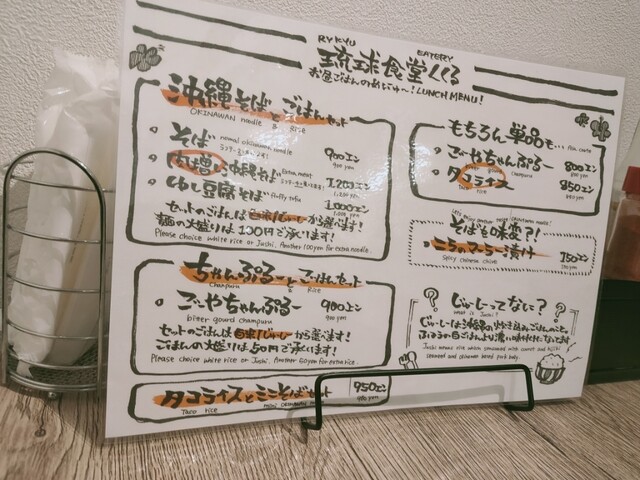 RYKYU EATERY
琉球食堂くくる
お昼ごはんのめにゅ〜! LUNCH MENU!
沖縄そばとごはんセット
OKINAWAN noodle Rice
そば normal okinawan noodle 900エン
900 yen
肉増し沖縄そば Extra meat 1,200エン
1,200 yen
ゆし豆腐そば fluffy tofu 1,000エン
1,000 yen
セットのごはんは白米/じゅーしーから選べます!
麺の大盛りは100円で承ります!
Please choose white rice or Jushi. Another 100yen for extra noodle.
ちゃんぷるーとごはんセット
Champuru Rice
ごーやちゃんぷるー 900エン
bitter gourd champuru 900 yen
セットのごはんは白米/じゅーしーから選べます!
ごはんの大盛りは50円で承ります!
Please choose white rice or Jushi. Another 50yen for extra rice.
タコライスとミニそばセット 950エン
Taco rice MINI OKINAWAN 950 yen
もちろん単品も…
ごーやちゃんぷるー 800エン
champuru 800 yen
タコライス 850エン
Taco Rice 850 yen
そばも味変?!
こちらのマーラー漬け 150エン
Spicy chinese chive 150 yen
じゅーしーってなに?
What is Jushi?
じゅーしーは沖縄の炊き込みごはんのこと。